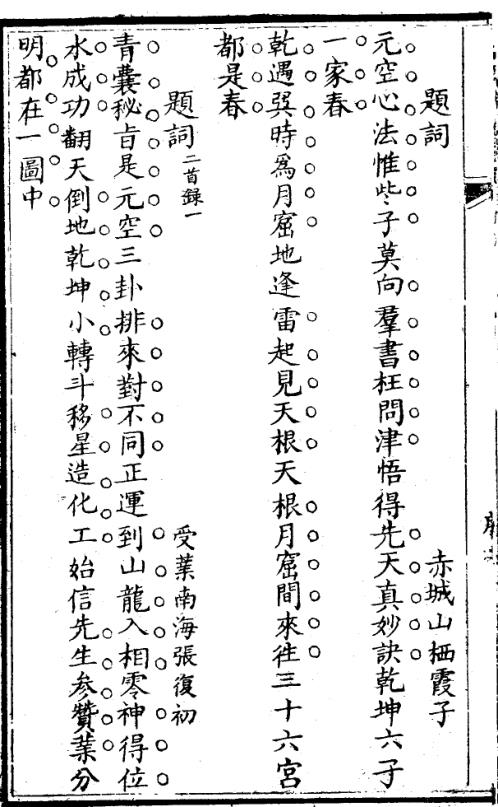 題詞
赤城山栖霞子
元空心法惟些子莫向羣書枉問津悟得先天真妙訣乾坤六子
一家春
乾遇巽時爲月窟地逢雷起見天根天根月窟間來徃三十六宮
都是春
題詞二首錄一
受業南海張復初
青囊秘旨是元空三卦排來對不同正運到山龍入相零神得位
水成功翻天倒地乾坤小轉斗移星造化工始信先生參贊業分
明都在一圖中